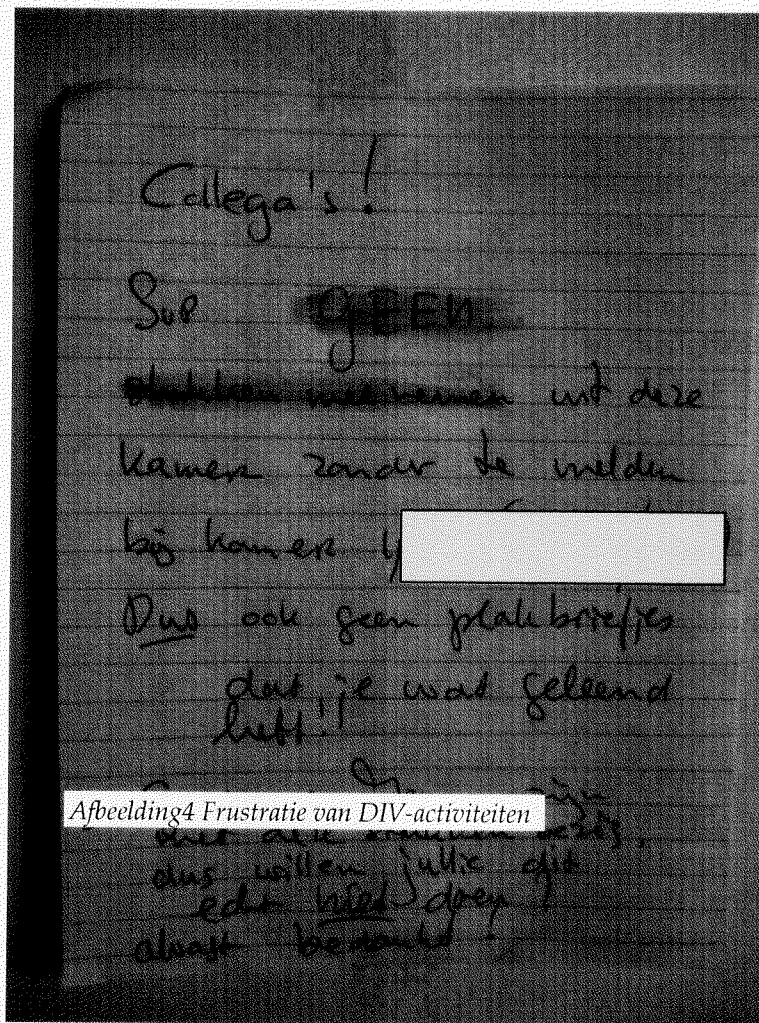 Collega's!
Svp GEEN
stukken meenemen uit deze
kamer zonder te melden
bij kamer
Dus ook geen plakbriefjes
dat je wat geleend
hebt!!
zijn
Afbeelding4 Frustratie van DIV-activiteiten
met alle stukken bezig,
dus willen jullie dit
echt niet doen!
alvast bedankt!